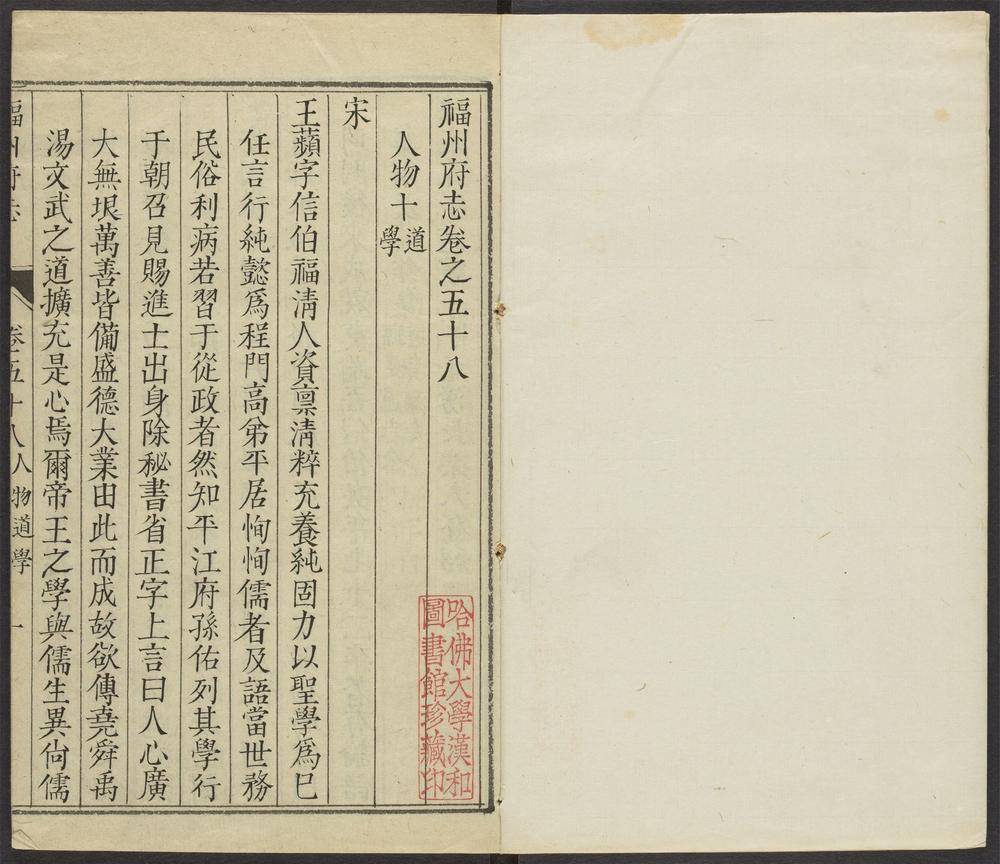 福州府志卷之五十八
人物十道學
宋
王蘋字信伯福清人資禀清粹充養純固力以聖學爲巳
任言行純懿爲程門高弟平居恂恂儒者及語當世務
民俗利病若習于從政者然知平江府孫佑列其學行
于朝召見賜進士出身除秘書省正字上言曰人心廣
大無垠萬善皆備盛德大業由此而成故欲傳堯舜禹
湯文武之道擴充是心焉爾帝王之學與儒生異尙儒
福州府志 卷五十八人物道學 一
哈佛大學漢和
圖書館珍藏印